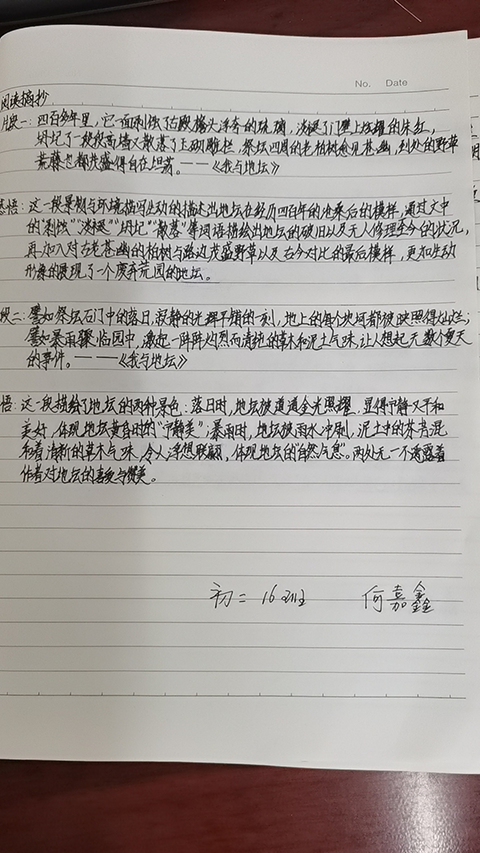 No. Date
阅读摘抄
片段一：四百多年里，它一面剥蚀了古殿檐头浮夸的琉璃，淡褪了门壁上炫耀的朱红，
坍圮了一段段高墙又散落了玉砌雕栏，祭坛四周的老柏树愈见苍幽，到处的野草
荒藤也都茂盛得自在坦荡。——《我与地坛》
感悟：这一段景物与环境描写生动的描述出地坛在经历四百年的沧桑后的模样，通过文中
的"剥蚀""淡褪""坍圮""散落"等词语描绘出地坛的破旧以及无人修理至今的状况，
再加入对古老苍幽的柏树与路边茂盛野草以及古今对比的最后模样，更加生动
形象的展现了一个废弃荒园的地坛。
段二：譬如祭坛石门中的落日，寂静的光辉平铺的一刻，地上的每个坎坷都被映照得灿烂；
譬如暴雨骤临园中，激起一阵阵灼烈而清纯的草木和泥土气味，让人想起无数个夏天
的事件。——《我与地坛》
悟：这一段描绘了地坛的两种景色：落日时，地坛被道道金光照耀，显得宁静又平和
美好，体现地坛黄昏时的"宁静美"；暴雨时，地坛被雨水冲刷，泥土中的芬芳混
和着清新的草木气味，令人浮想联翩，体现地坛的"自然气息"。两处无一不透露着
作者对地坛的喜爱与赞美。
初二 16班 何嘉鑫